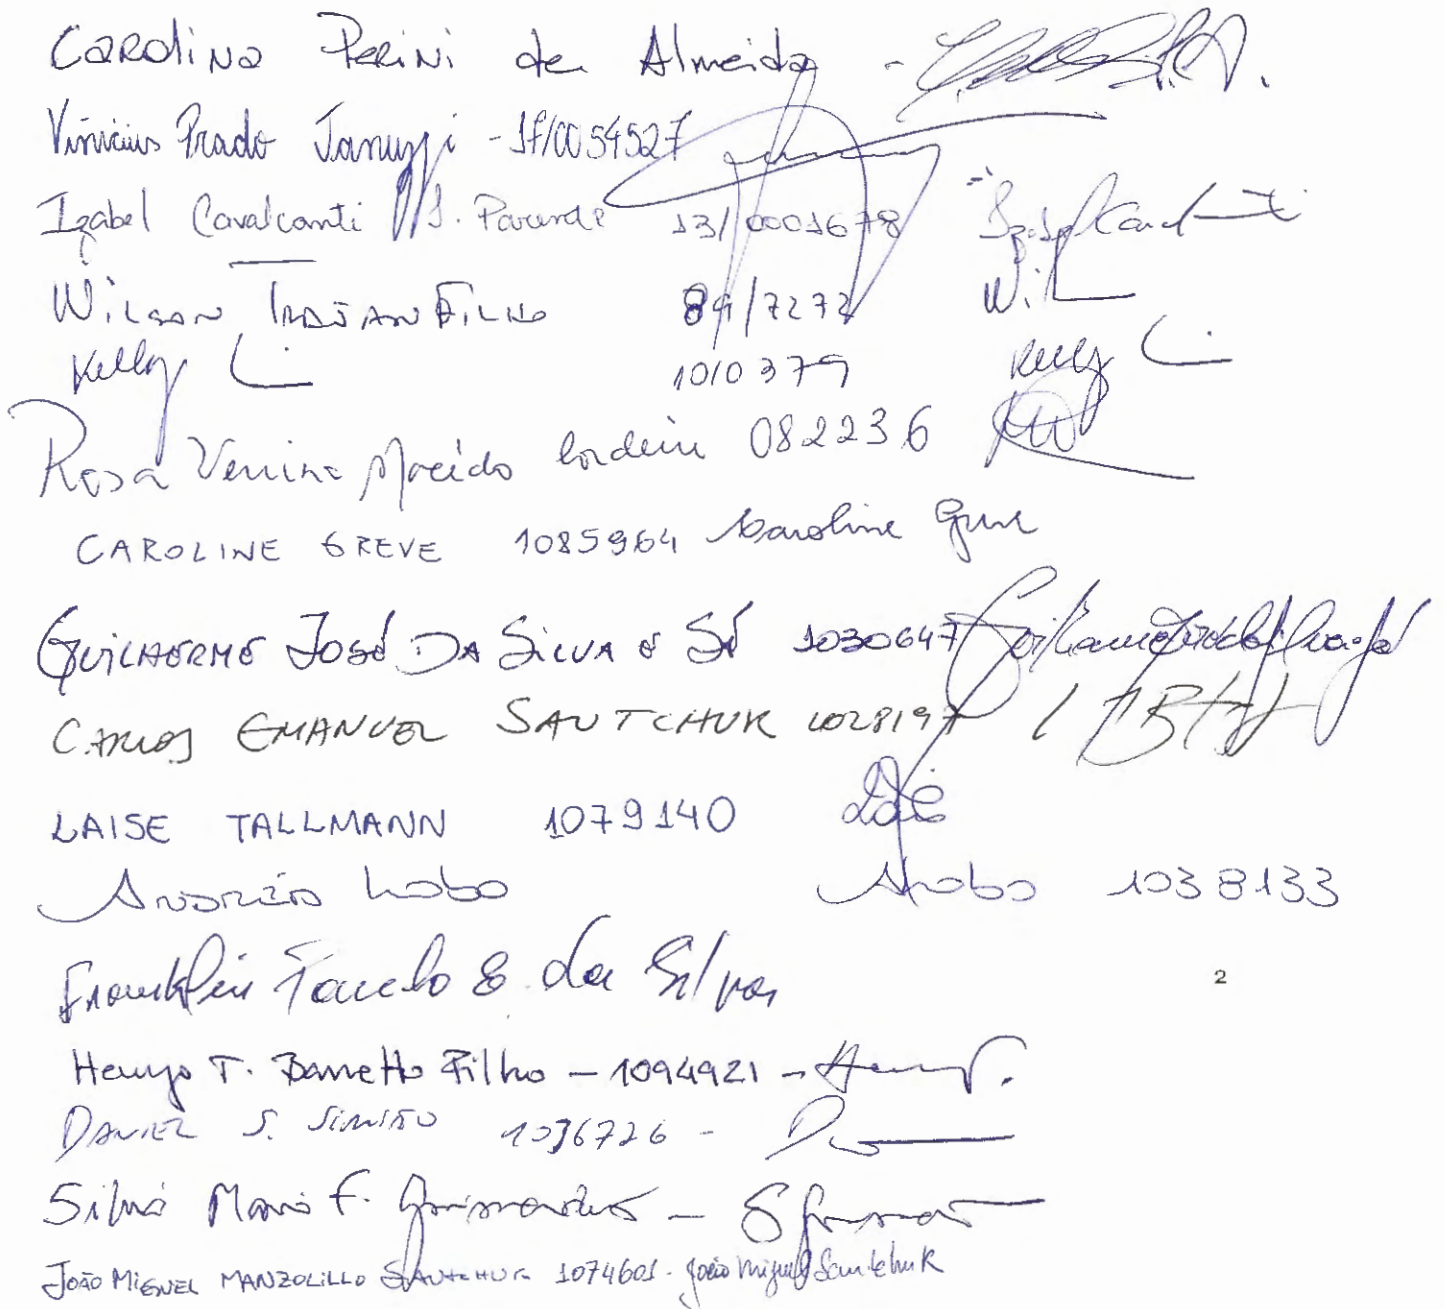 Carolina Perini de Almeida -
Vinicius Prado Januzzi - 17/0054527
Izabel Cavalcanti 13/0001678
Wilson Trajano Filho 89/7272 Wil
Kelly 1010379 Kelly
Rosa Macêdo Cordeiro 082236
CAROLINE GREVE 1085964 Caroline Greve
GUILHERME JOSÉ DA SILVA E SÁ 1030647
CARLOS EMANUEL SAUTCHUK 1028197 /
LAISE TALLMANN 1079140
Andréa Lobo ALobo 1038133
Franklin da Silva
2
Henyo T. Barretto Filho - 1094921 -
DANIEL S. SIMIÃO 1036726 -
Silvia Maria F. Guimarães -
JOÃO MIGUEL MANZOLILLO SAUTCHUK 1074601 - João Miguel Sautchuk